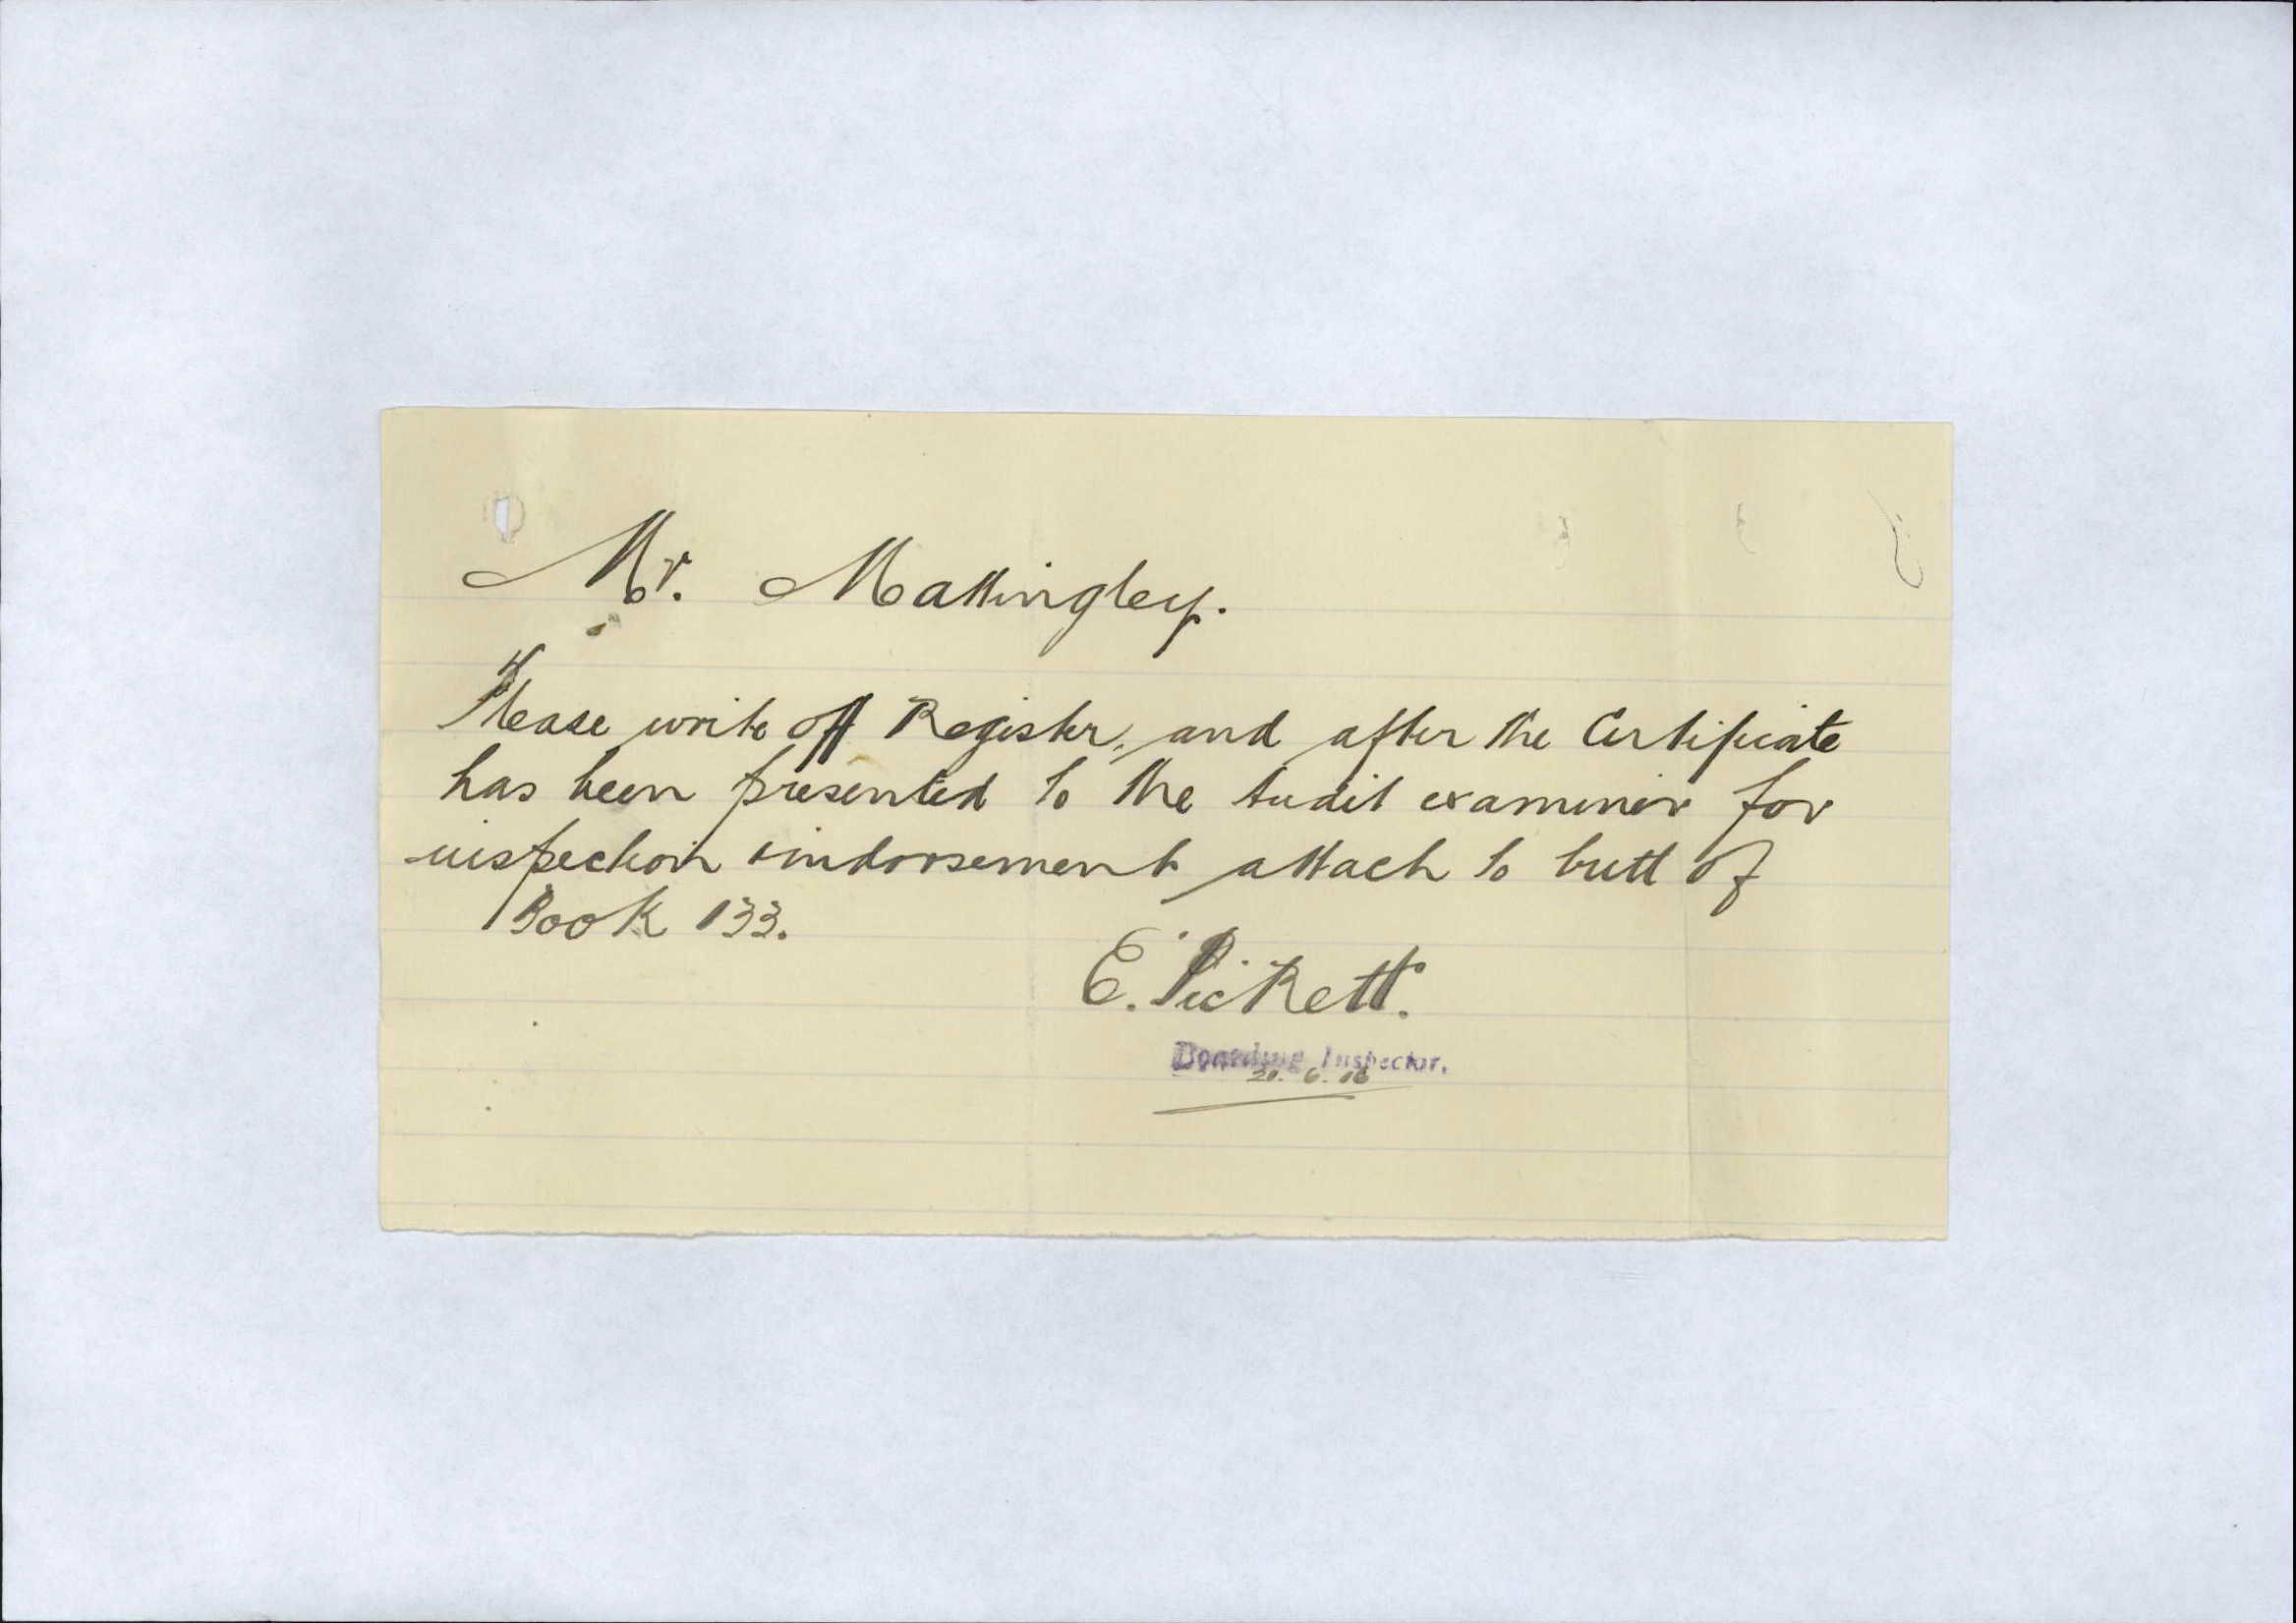 Mr. Mattingley.
Please write off Register, and after the Certificate
has been presented to the Audit examiner for
inspection & indorsement attach to butt of
Book 133.
E. Pickett.
Boarding Inspector.
20. 6. 16